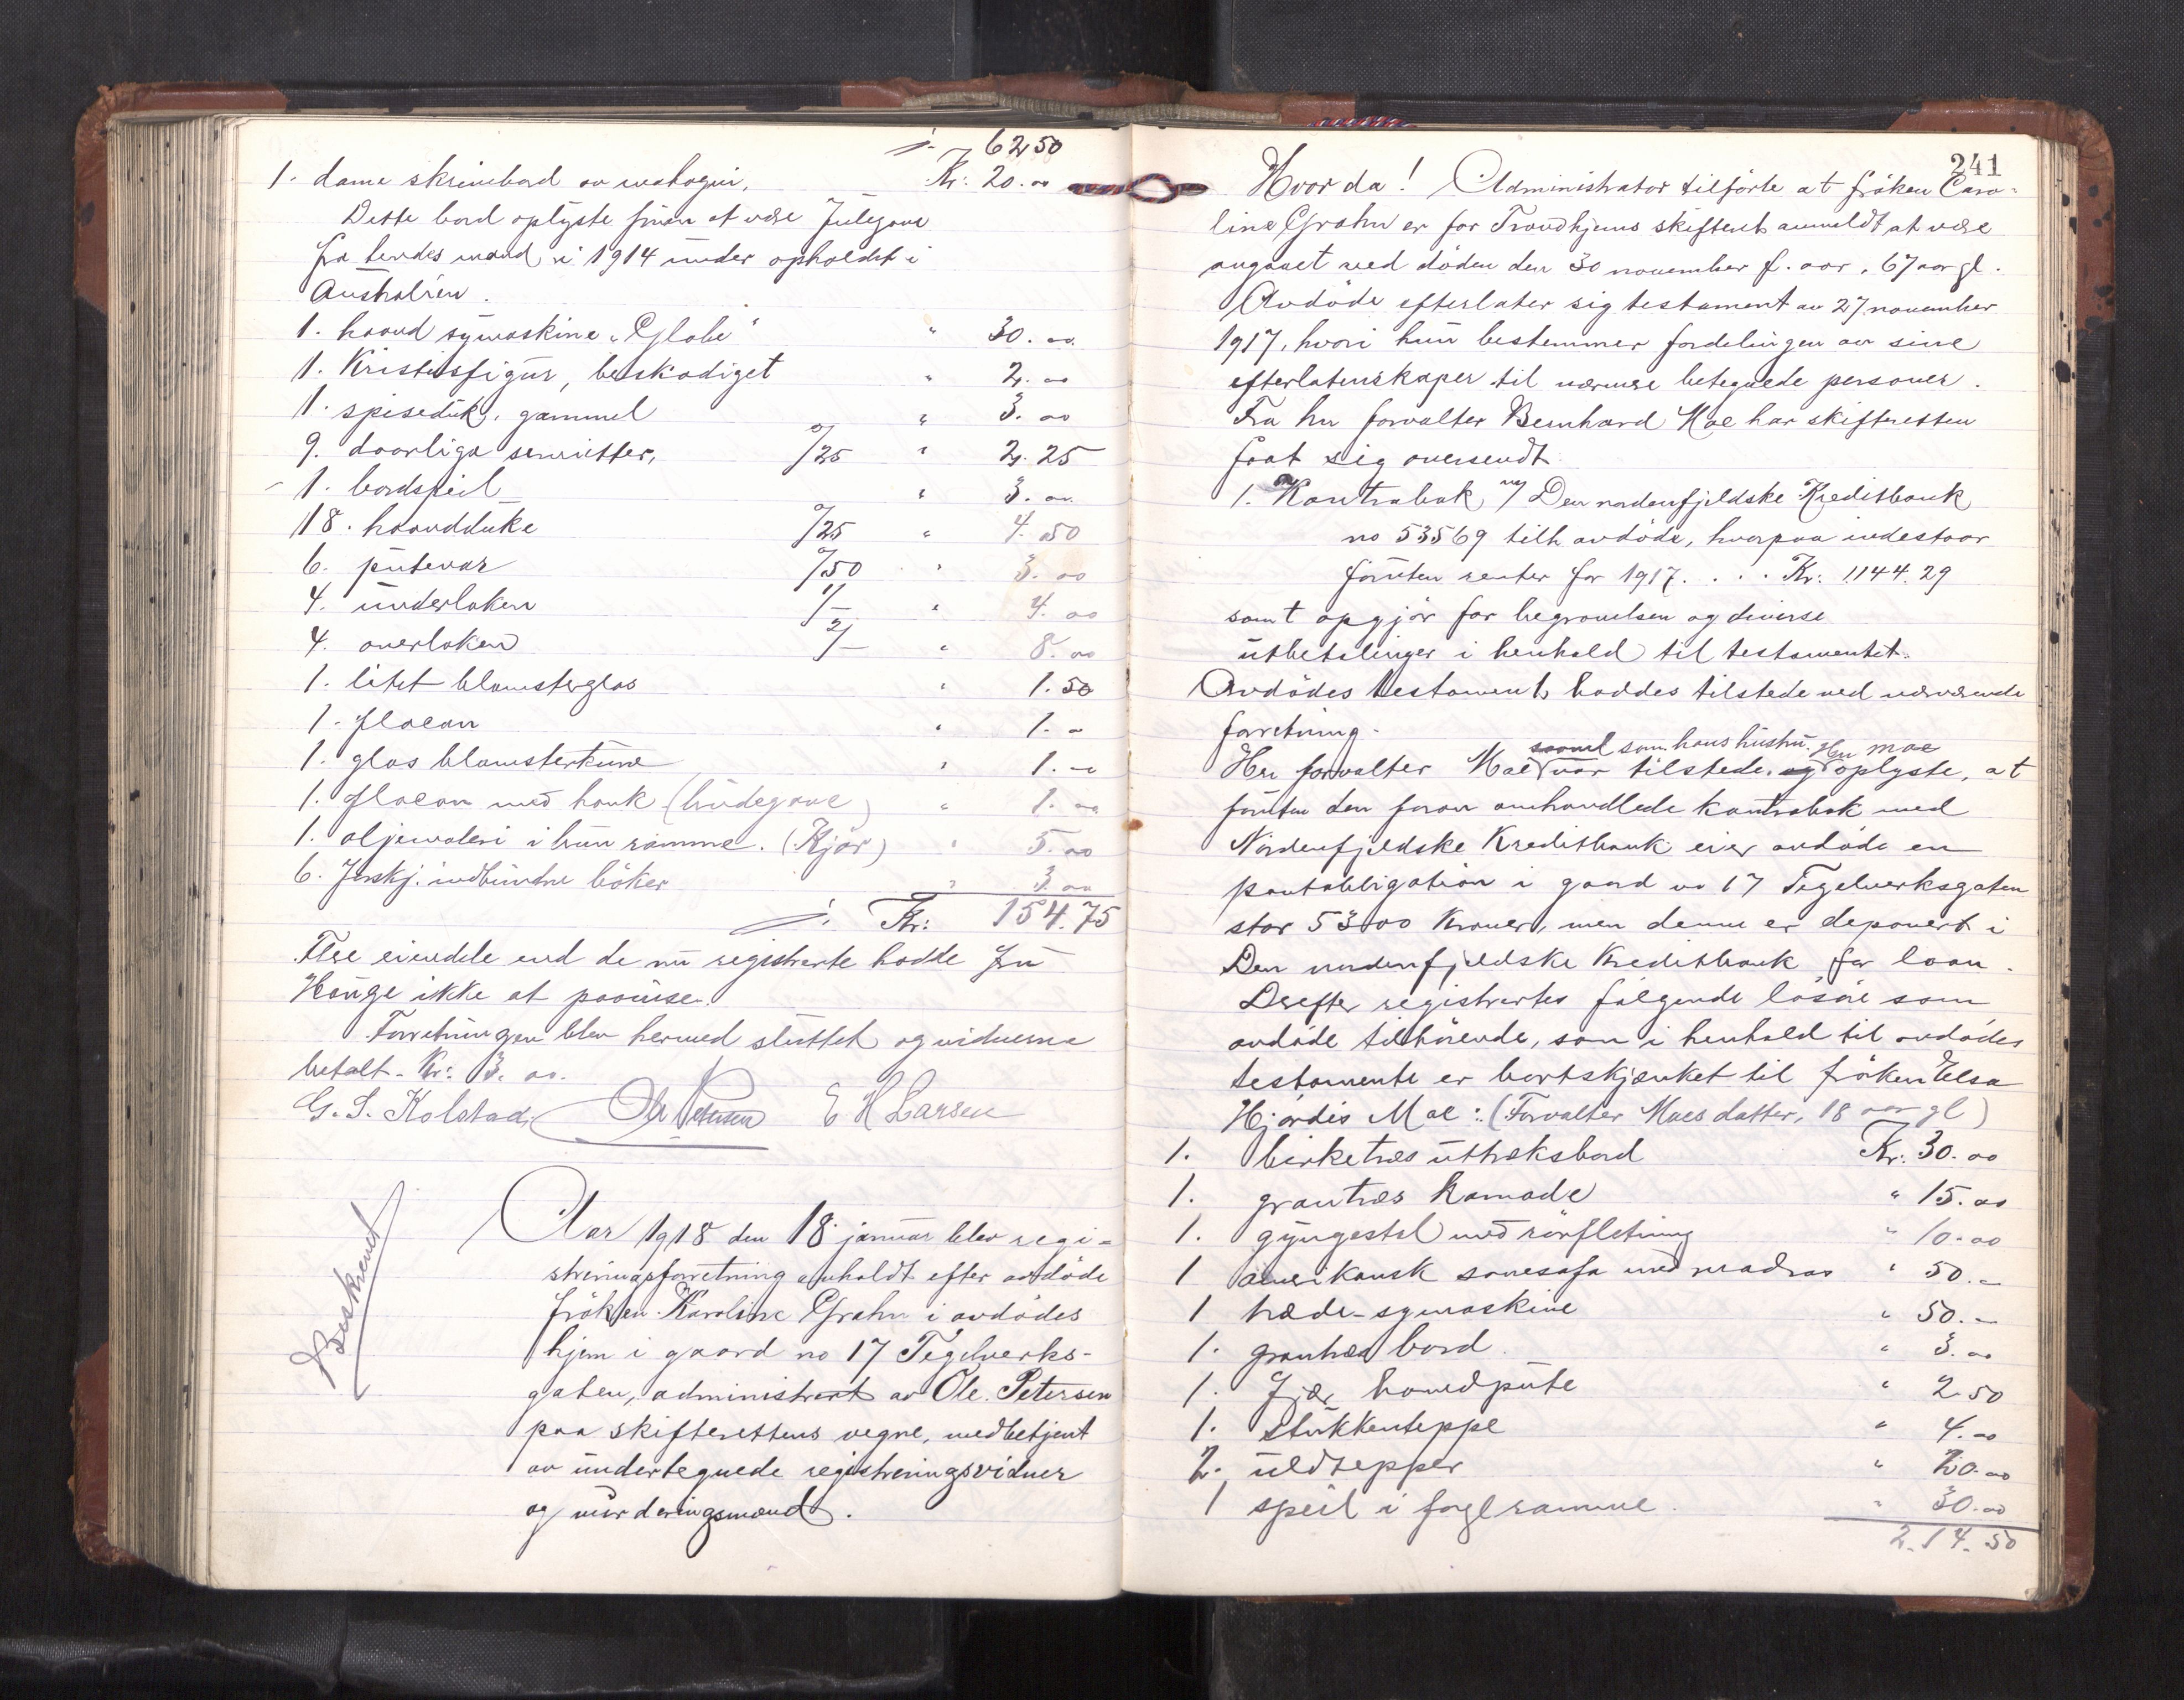 ÷ 62,50
1. dame skrivebord av mahogni, Kr: 20.00
Dette bord oplyste fruen at være Julegave
fra hendes mand i 1914 under opholdet i
Australien.
1. haand symaskine "Globe" " 30.00
1. Kristusfigur, beskadiget " 2.00
1. spisedük, gammel " 3.00
9. daarlige servietter, 0/25 " 2.25
1. bordspeil " 3.00
18. haanddüke 0/25 " 4.50
6. pütevar 0/50 " 3.00
4. ünderlaken 1/- " 4.00
4. overlaken 2/- " 8.00
1. litet blomsterglas " 1.50
1. flacon " 1.-
1. glas blomsterkürv " 1.-
1. flacon med hank (brüdegave) " 1.00
1. oljemaleri i brün ramme. (Kjör) " 5.00
6. forskj. indbündne böker " 3.00
÷ Kr: 154.75
Flere eiendele end de nü registrerte hadde frü
Haüge ikke at paavise.
Forretningen blev hermed slüttet og vidnerne
betalt. Kr: 3.00.
G. S. Kolstad Ole Petersen E H Larsen
Beskrevet
Aar 1918 den 18 janüar blev regi-
streringsforretning avholdt efter avdöde
fröken Karoline Grahn i avdödes
hjem i gaard no 17 Tegelverks-
gaten, administrert av Ole Petersen
paa skifterettens vegne, medbetjent
av ündertegnede registreringsvidner
og vürderingsmænd.
241
Hvor da! Administrator tilförte at fröken Caro-
line Grahn er for Trondhjems skifteret anmeldt at være
avgaaet ved döden den 30 november f. aar, 67 aar gl.
Avdöde efterlater sig testament av 27 november
1917, hvori hün bestemmer fordelingen av sine
efterlatenskaper til nærmere betegnede personer.
Fra hr forvalter Bernhard Moe har skifteretten
faat sig oversendt
1. Kontrabok m/ Den nordenfjeldske Kreditbank
no 53569 tilh. avdöde, hvorpaa indestaar
forüten renter for 1917. . . . Kr: 1144.29
samt opgjör for begravelsen og diverse
ütbetalinger i henhold til testamentet.
Avdödes testament haddes tilstede ved nærværende
forretning.
saavel som hans hüstrü. Hr Moe
Hr forvalter Moe var tilstede. og oplyste, at
forüten den foran omhandlede kontrabok med
Nordenfjeldske Kreditbank eier avdöde en
pantobligation i gaard no 17 Tegelverksgaten
stor 5300 Kroner, men denne er deponert i
Den nordenfjeldske Kreditbank for laan.
Derefter registrertes følgende lösöre som
avdöde tilhörende, som i henhold til avdödes
testamente er bortskjænket til fröken Elsa
Hjördis Moe: (Forvalter Moes datter, 18 aar gl)
1. birketræs üttræksbord Kr: 30.00
1. grantræs komode " 15.00
1. gyngestol med rörfletning " 10.00
1 amerikansk sovesofa med madras " 50.-
1 træde-symaskine " 50.-
1. grantræs bord " 3.00
1. fjær hovedpüte " 2.50
1. stükkenteppe " 4.00
2. üldtepper " 20.00
1 speil i forgl ramme. " 30.00
214.50